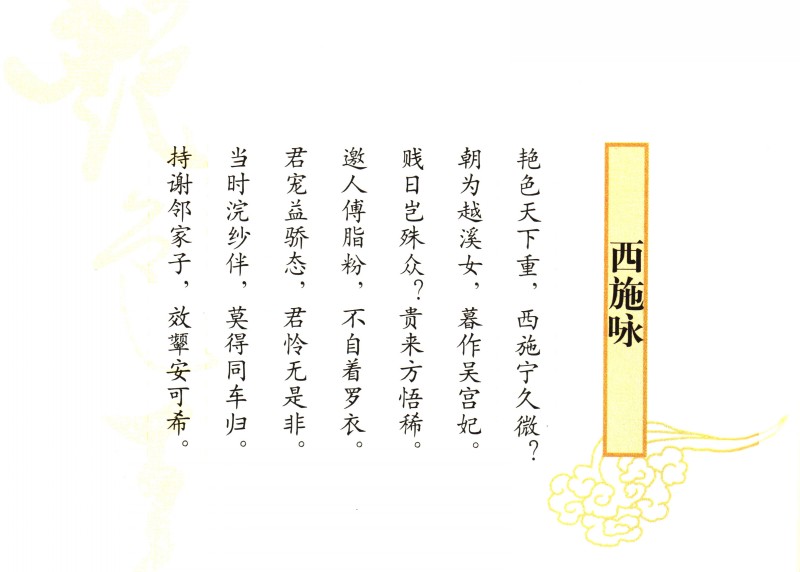 西施咏
艳色天下重，西施宁久微？
朝为越溪女，暮作吴宫妃。
贱日岂殊众？贵来方悟稀。
邀人傅脂粉，不自着罗衣。
君宠益骄态，君怜无是非。
当时浣纱伴，莫得同车归。
持谢邻家子，效颦安可希。